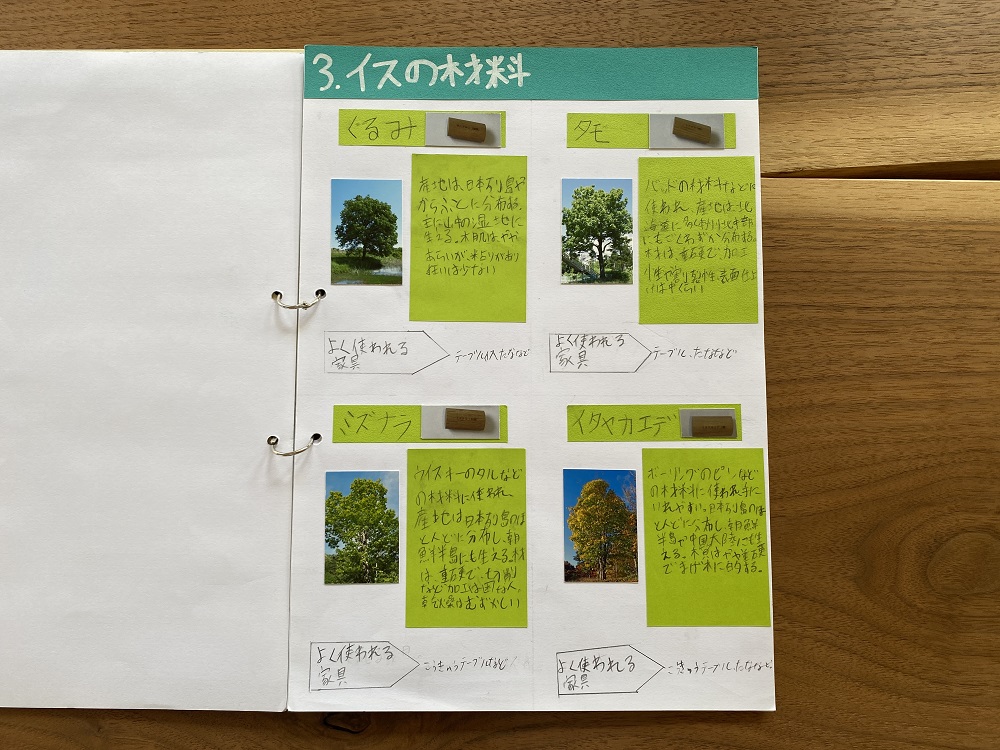 3.イスの材料
ぐるみ
産地は、日本列島や
からふとに分布する。
主に山中の湿地に
生える。木肌はやや
あらいが、粘りがあり
狂いは少ない
よく使われる
家具
テーブル イス たななど
タモ
バットの材料などに
使われ、産地は北
海道に多く
分布する。
材は、重硬で、加工
性や割裂性、表面仕上
いは中くらい
よく使われる
家具
テーブル、たななど
ミズナラ
ウイスキーのタルなど
の材料に使われ、
産地は日本列島のほ
とんどに分布し、朝
鮮半島にも生える。材
は、重硬で、切削
など加工は困なん。
乾燥はむずかしい
よく使われる
家具
こうきゅうテーブルなど
イタヤカエデ
ボーリングのピンなど
の材料に使われ手に
いれやすい。日本列島のほ
とんどに分布し、朝鮮
半島や中国大陸にも生
える。木質はやや重硬
でまげ木に
よく使われる
家具
こきゅうテーブル、たななど